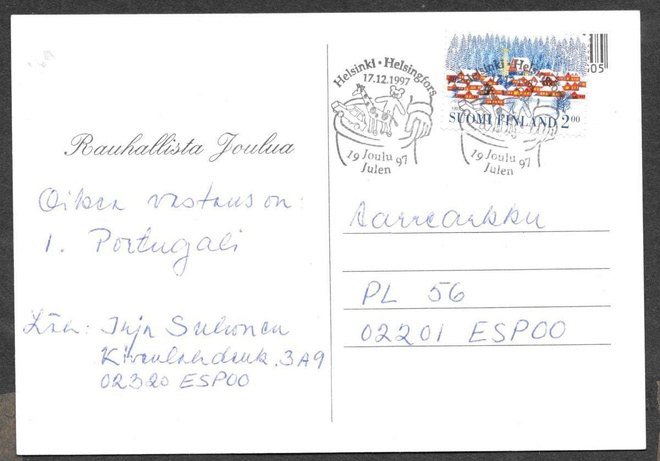 Rauhallista Joulua
Oikea vastaus on:
1. Portugali
Läh: Irja Suhonen
Kivenlahdenk. 3A9
02320 ESPOO
Helsinki • Helsingfors
17.12.1997
19 Joulu 97
Julen
Helsinki • Helsingfors
17.12.
SUOMI FINLAND 2.00
19 Joulu 97
Julen
05
Aarrearkku
PL 56
02201 ESPOO